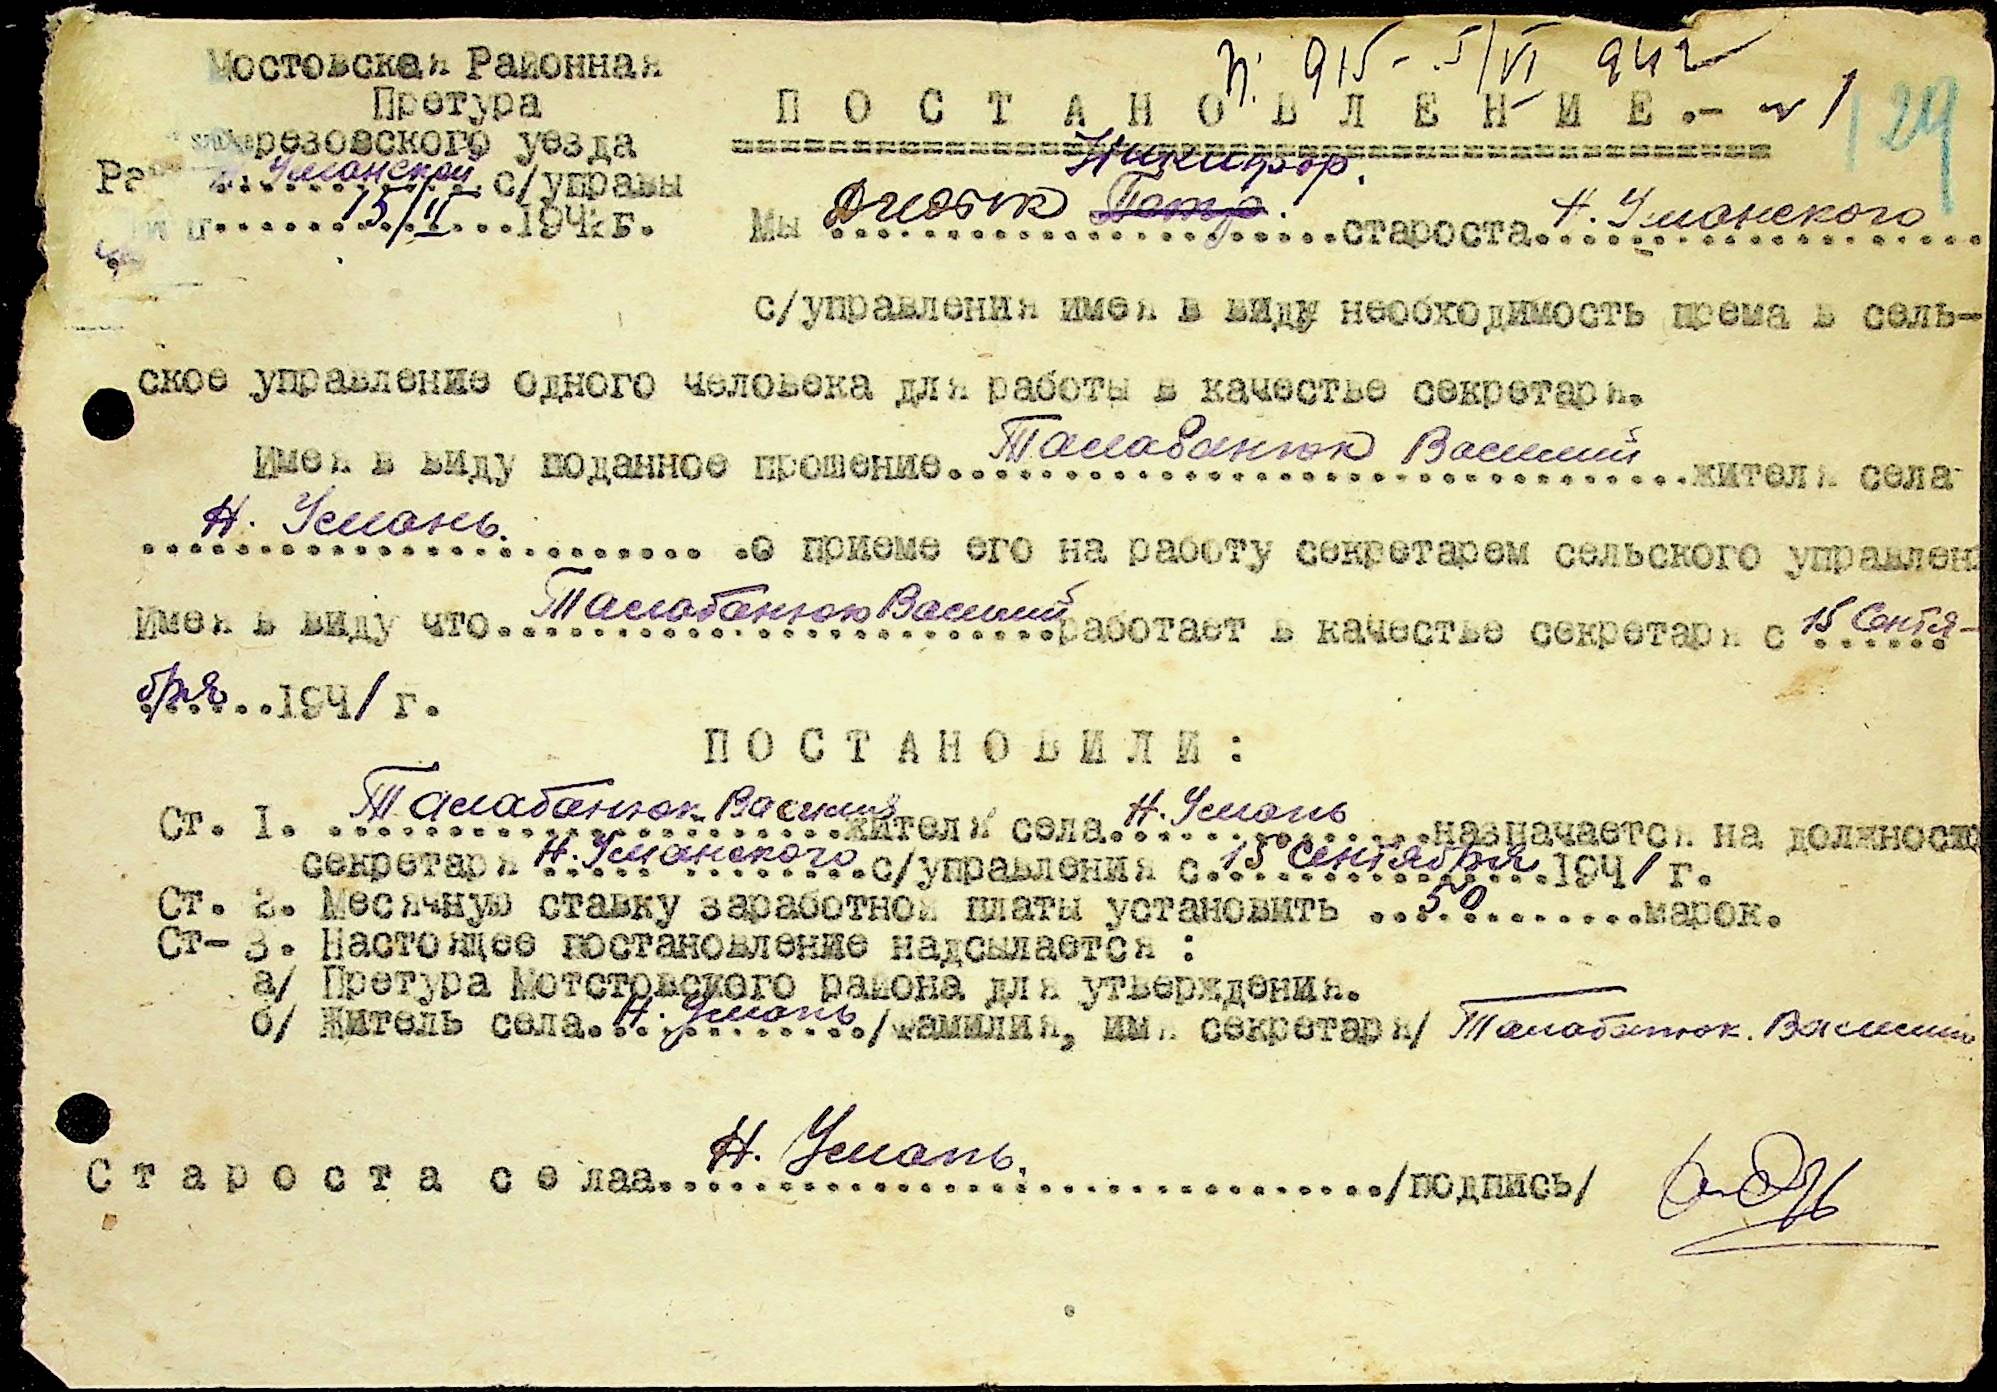 N. 915 - 5/VI 942
Мостовская Районная
Претура
Березовского уезда
Н. Уманской с/управы
15/II 194 г.
П О С Т А Н О В Л Е Н И Е.- N 1
129
Никифор.
Мы ..... Петр. .....староста.Н. Уманского
с/управления имея в виду необходимость према в сель-
ское управление одного человека для работы в качестве секретаря.
Имея в виду поданное прошение Талабанюк Василий жителя села
Н. Умань. .о приеме его на работу секретарем сельского управлен
Имея в виду что Талабанюк Василий работает в качестве секретаря с 15 Сентя-
бря ..1941 г.
П О С Т А Н О В И Л И :
Ст. 1. Талабанюк Василия жителя села Н. Умань назначается на должность
секретаря Н. Уманского с/управления с 15 Сентября 1941 г.
Ст. 2. Месячную ставку заработной платы установить 50 марок.
Ст- 3. Настоящее постановление надсылается :
а/ Претура Мотстовского района для утверждения.
б/ Житель села Н. Умань /фамилия, имя секретаря/ Талабанюк. Василий
С т а р о с т а с е лаа Н. Умань. /подпись/